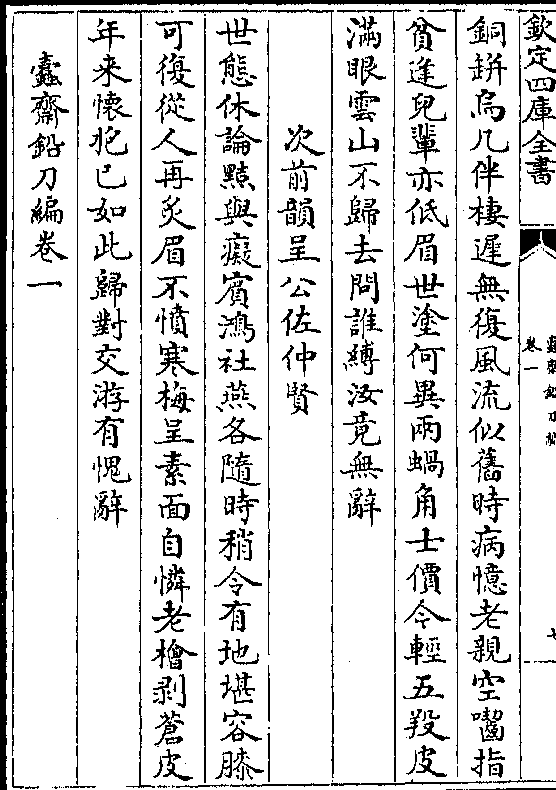 欽定四庫全書
卷一
七
銅缾烏几伴棲遲無復風流似舊時病憶老親空囓指
貧逢兒輩亦低眉世塗何異兩蝸角士價今輕五羖皮
滿眼雲山不歸去問誰縛汝竟無辭
次前韻呈公佐仲賢
世態休論黠與癡賓鴻社燕各隨時稍令有地堪容膝
可復從人再炙眉不憤寒梅呈素面自憐老檜剥蒼皮
年来懷抱已如此歸對交游有愧辭
蠹齋鉛刀編卷一